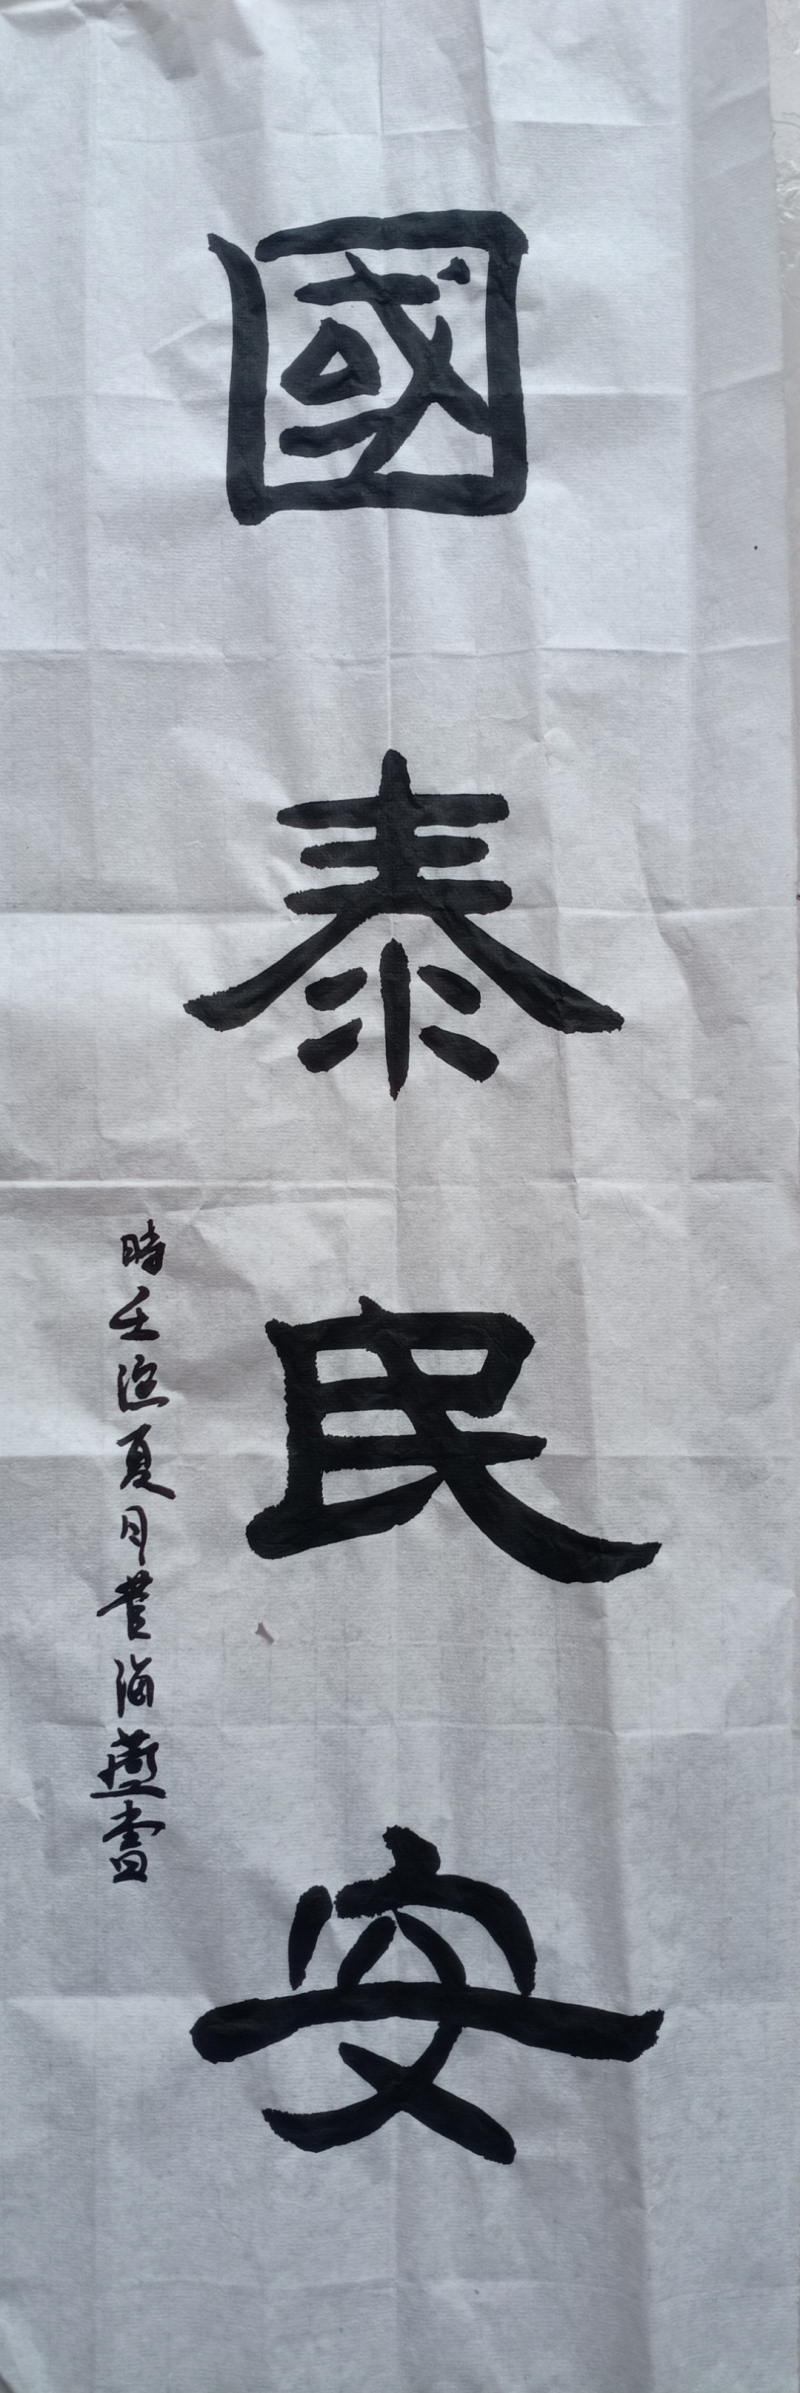 國泰民安
時壬寅夏月黄海燕書